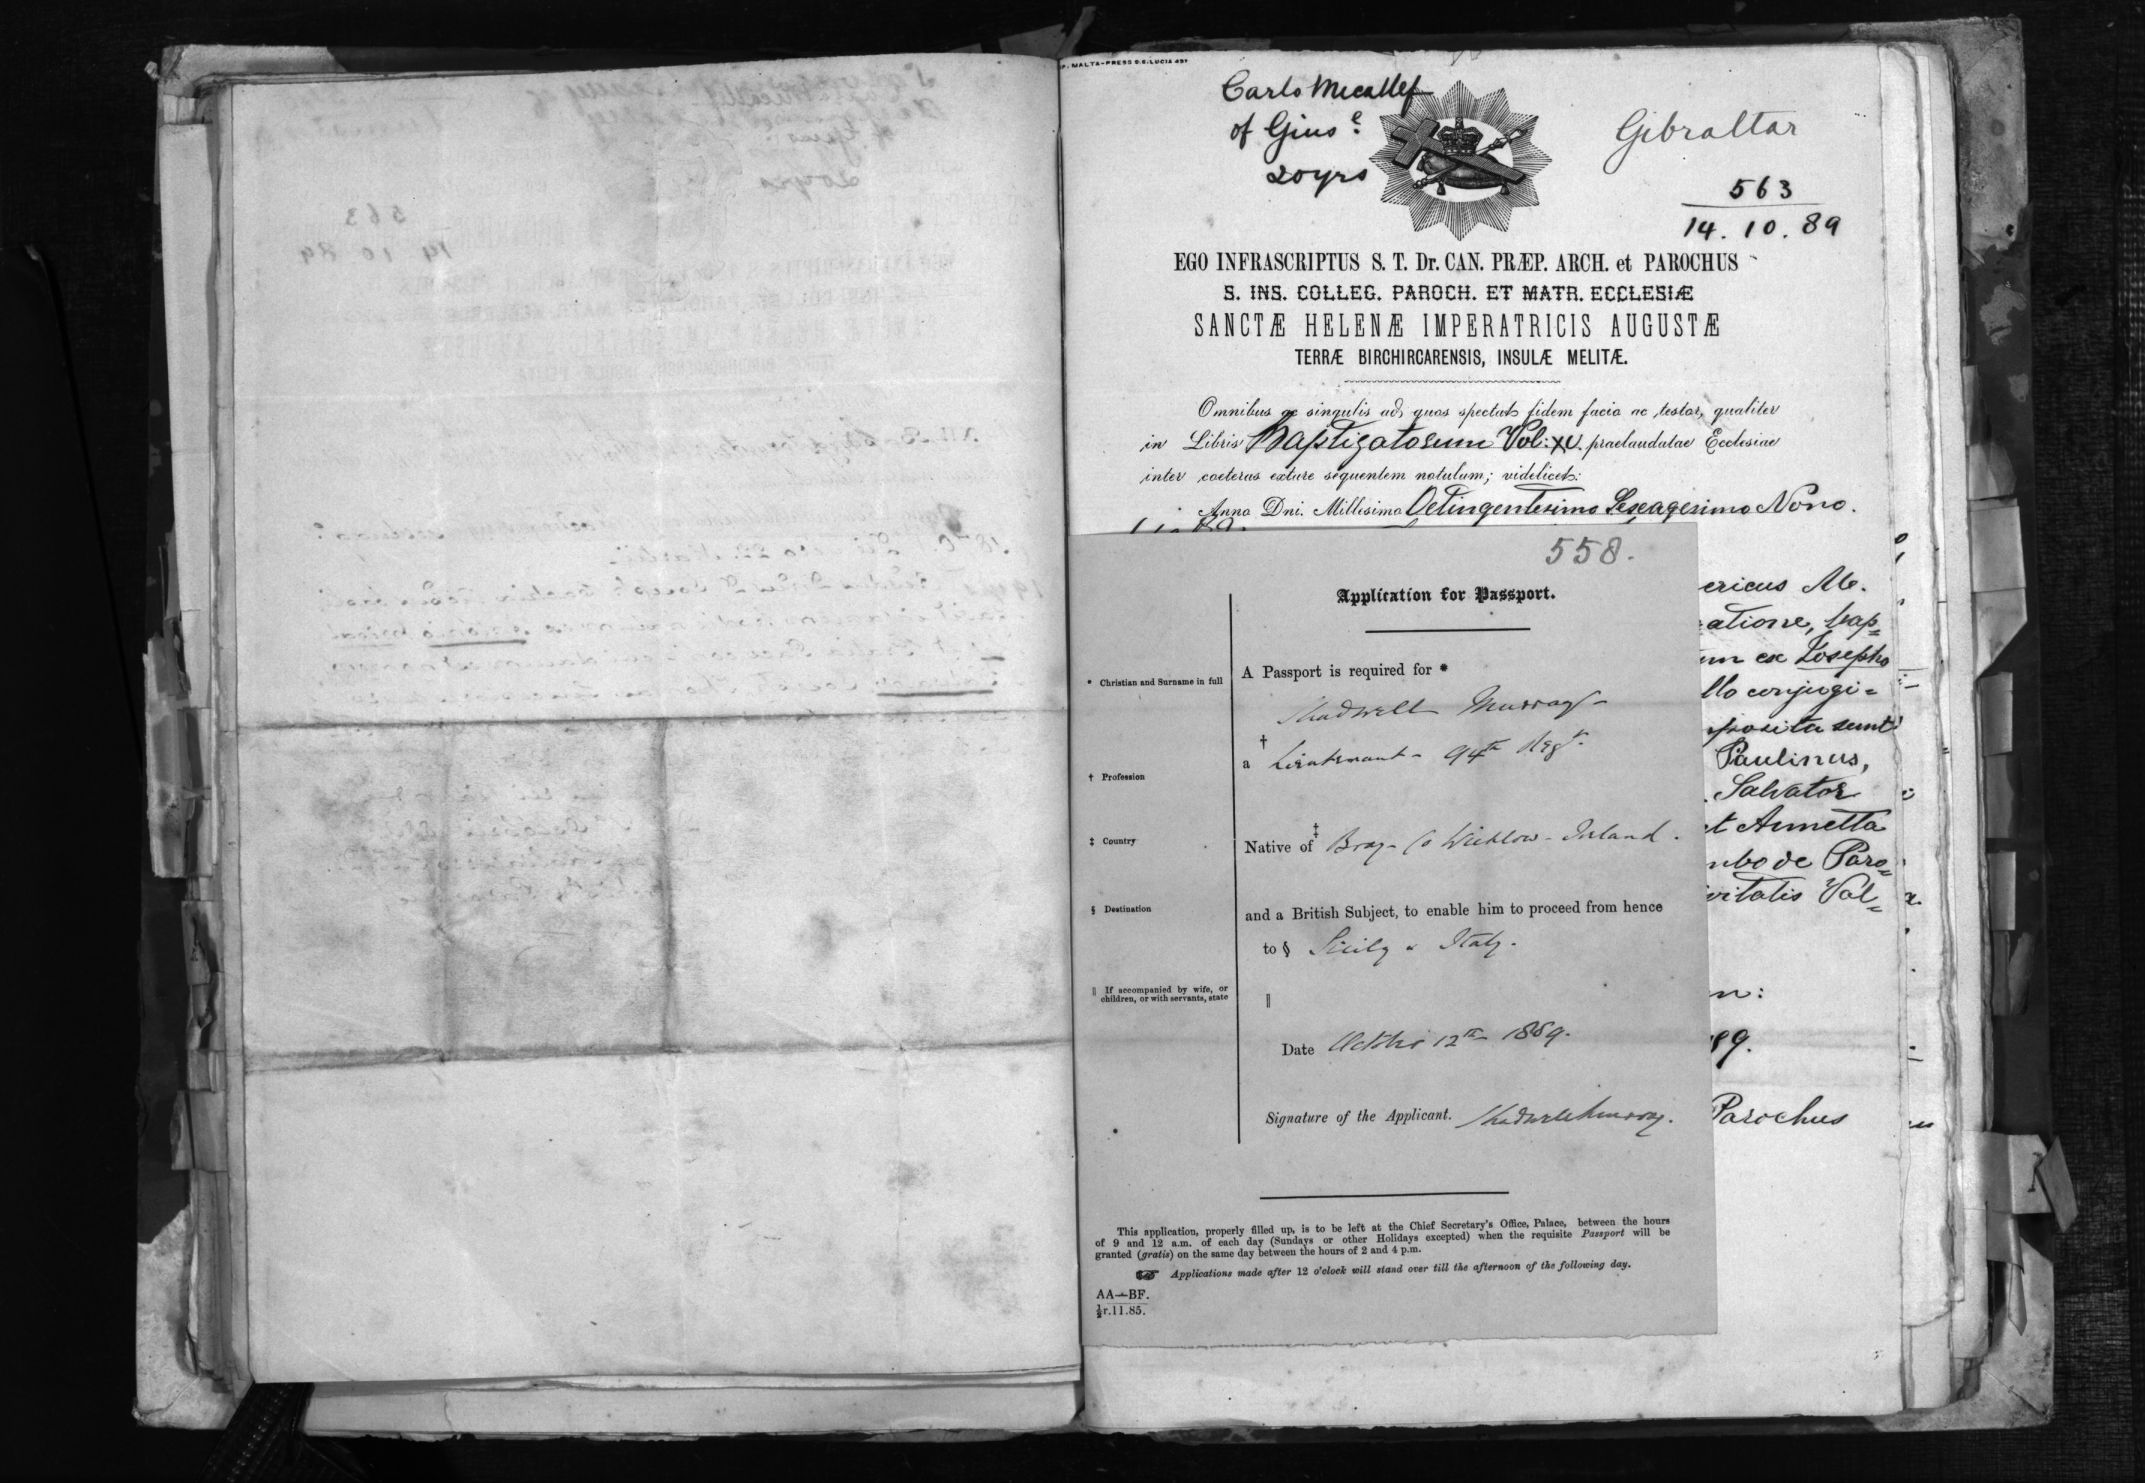 MALTA-PRESS S.S. LUCIA 497
Carlo Micallef
of Gius.e
20 yrs
Gibraltar
563
14. 10. 89
EGO INFRASCRIPTUS S. T. Dr. CAN. PRÆP. ARCH. et PAROCHUS
S. INS. COLLEG. PAROCH. ET MATR. ECCLESIÆ
SANCTÆ HELENÆ IMPERATRICIS AUGUSTÆ
TERRÆ BIRCHIRCARENSIS, INSULÆ MELITÆ.
Omnibus ac singulis ad quos spectat fidem facio ac testor, qualiter
in Libris Baptizatorum Vol: XV. praelaudatae Ecclesiae
inter coeteras extare sequentem notulam; videlicet:
Anno Dni. Millesimo Octingentesimo Sexagesimo Nono.
558.
Application for Passport.
* Christian and Surname in full
A Passport is required for *
Shadwell Murray
† Profession
†
a Lieutenant - 94th Regt.
‡ Country
‡
Native of Bray - Co Wicklow - Ireland.
§ Destination
and a British Subject, to enable him to proceed from hence
to § Sicily & Italy.
‖ If accompanied by wife, or
children, or with servants, state
‖
Date October 12th 1889.
Signature of the Applicant. Shadwell Murray.
This application, properly filled up, is to be left at the Chief Secretary's Office, Palace, between the hours
of 9 and 12 a.m. of each day (Sundays or other Holidays excepted) when the requisite Passport will be
granted (gratis) on the same day between the hours of 2 and 4 p.m.
Applications made after 12 o'clock will stand over till the afternoon of the following day.
AA—BF.
½r.11.85.
ericus Me.
atione, bap=
um ex Josepho
llo conjugi=
posita sunt
Paulinus,
Salvator
et Annetta
mbo de Paro=
vitatis Val=
n:
89.
Parochus